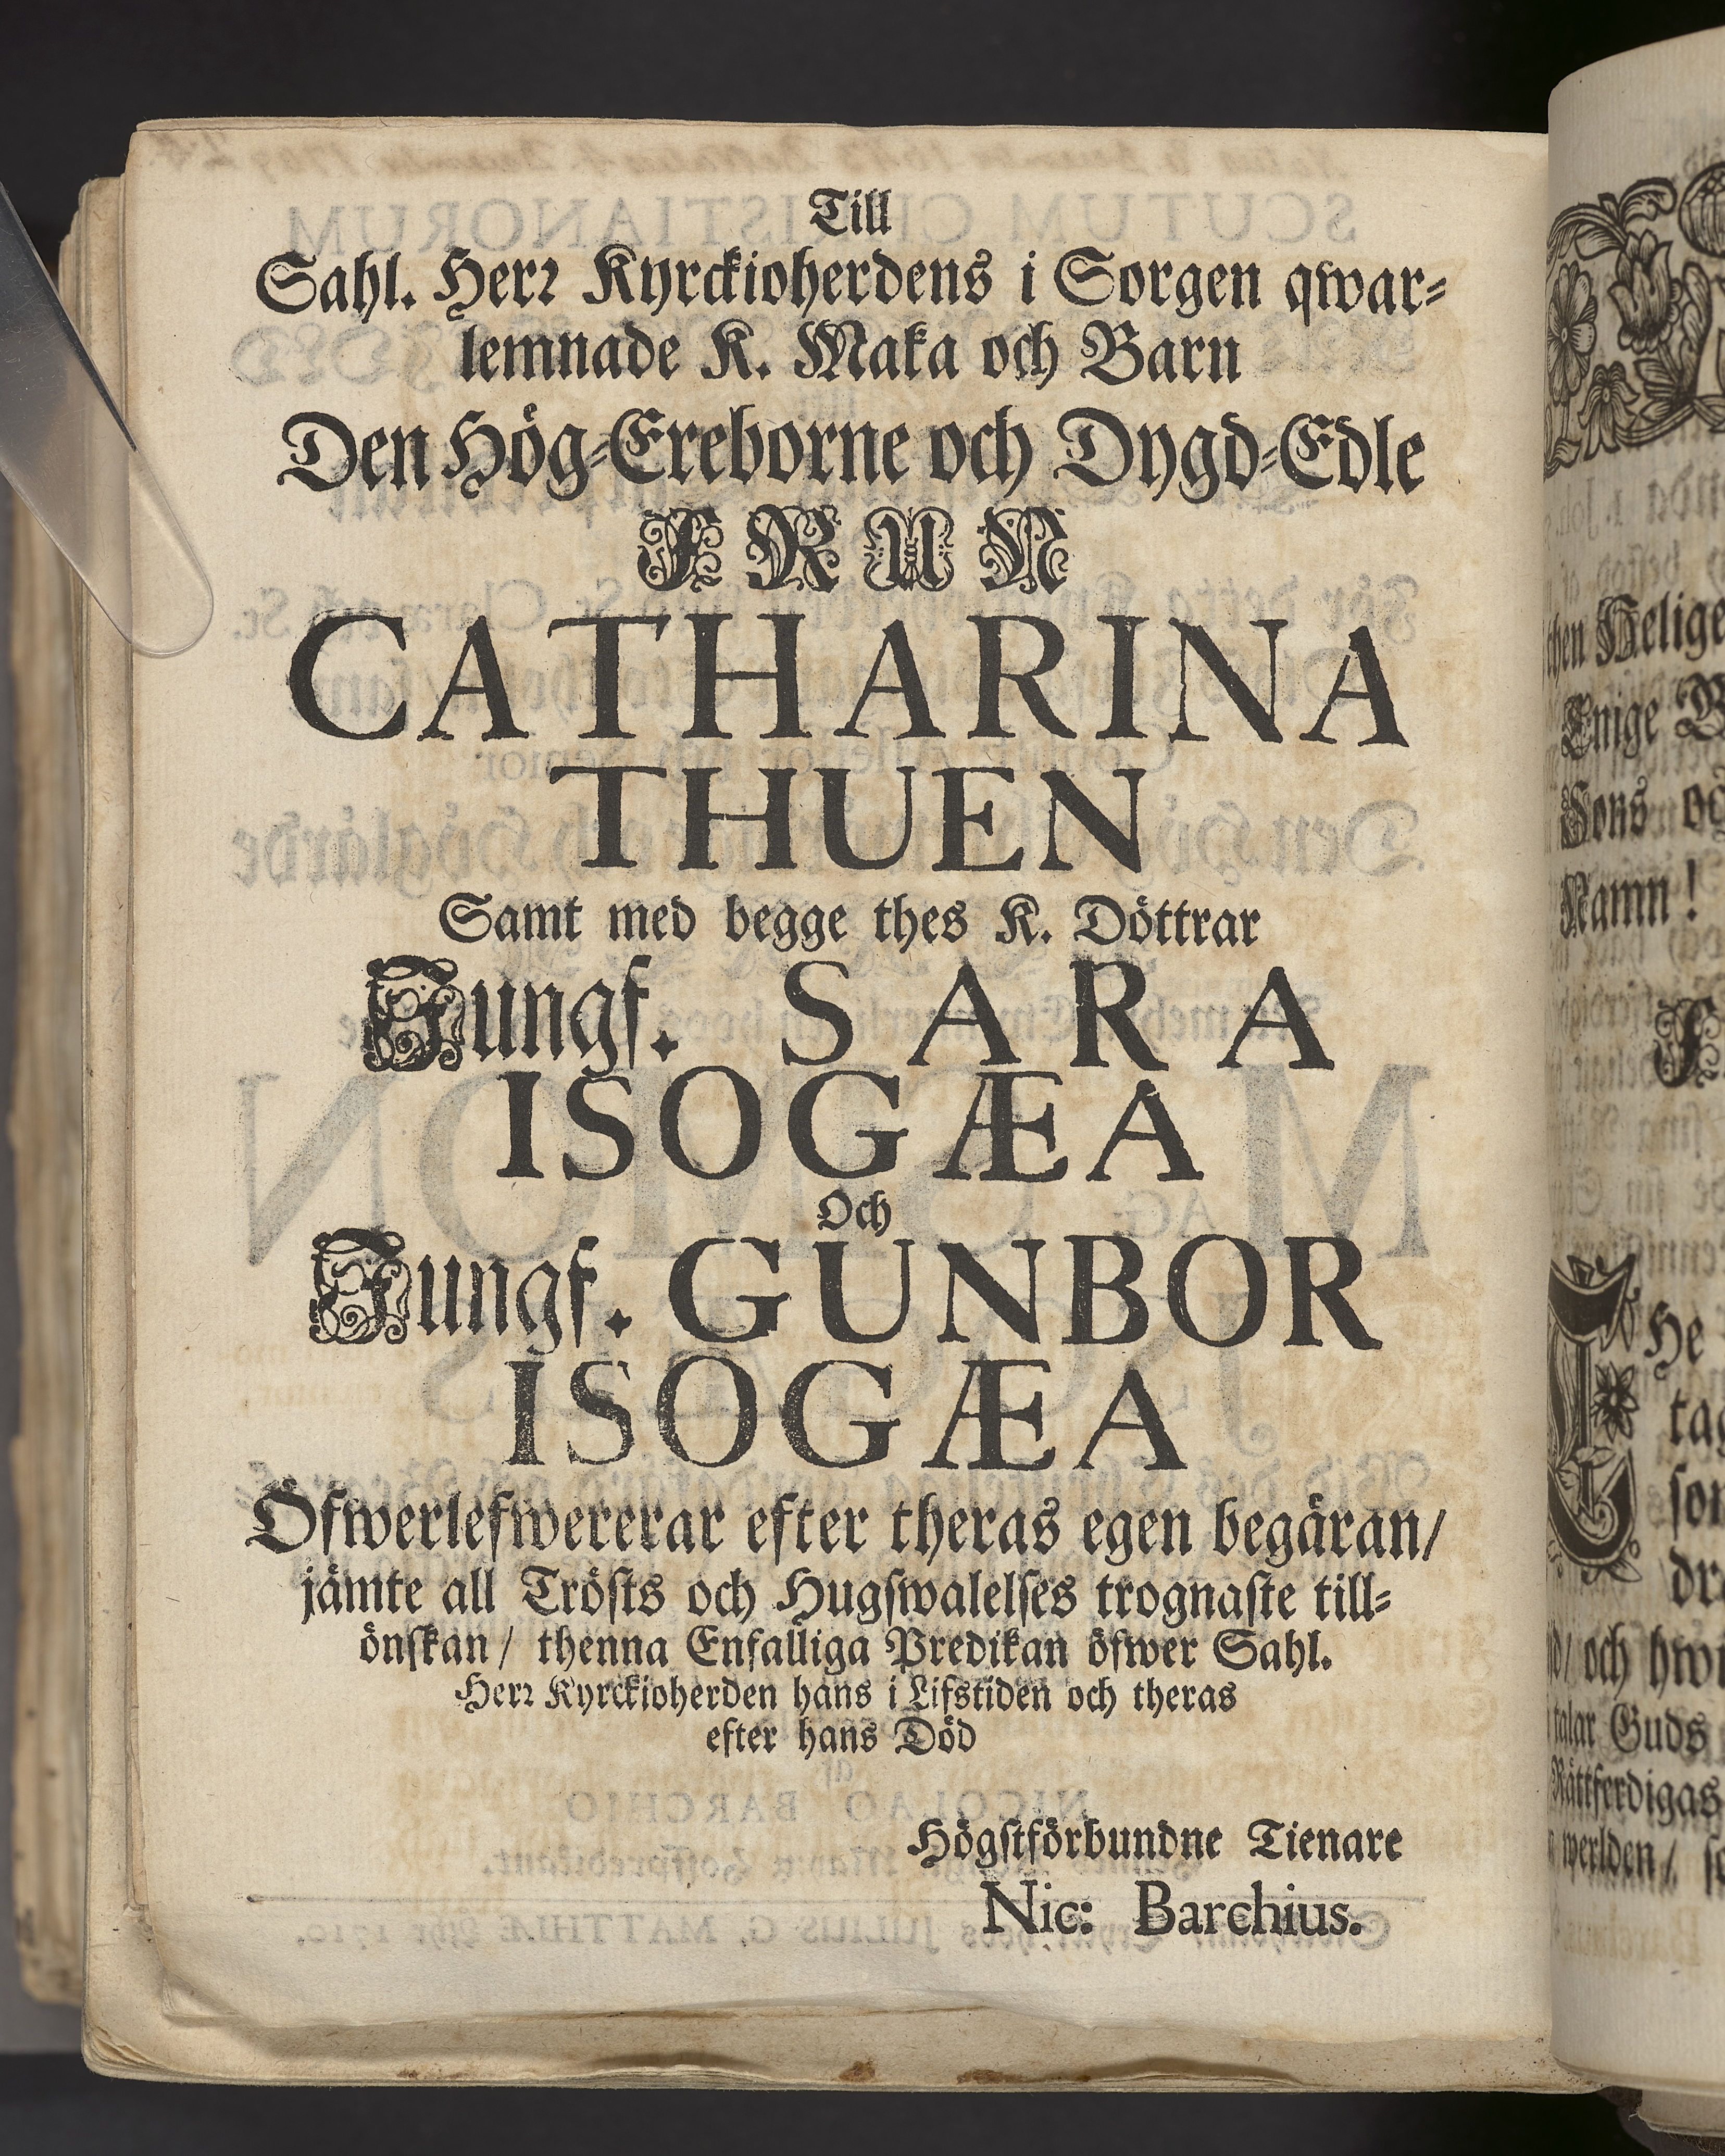 Till
Sahl. Herr Kyrckioherdens i Sorgen qwar-
lemnade K. Maka och Barn
Den Hög-Ereborne och Dygd-Edle
FRUN
CATHARINA
THUEN
Samt med begge thes K. Döttrar
Jungf. SARA
ISOGÆA
Och
Jungf. GUNBOR
ISOGÆA
Öfwerlefwererar efter theras egen begäran/
jämte all Tröſts och Hugſwalelſes trognaſte till-
önſkan/ thenna Enfalliga Predikan öfwer Sahl.
Herr Kyrckioherden hans i Lifstiden och theras
efter hans Död
Högſtförbundne Tienare
Nic: Barchius.
Helige
Enige
Sons
Namn!
He
och
talar Guds
Rättferdigas
werlden/